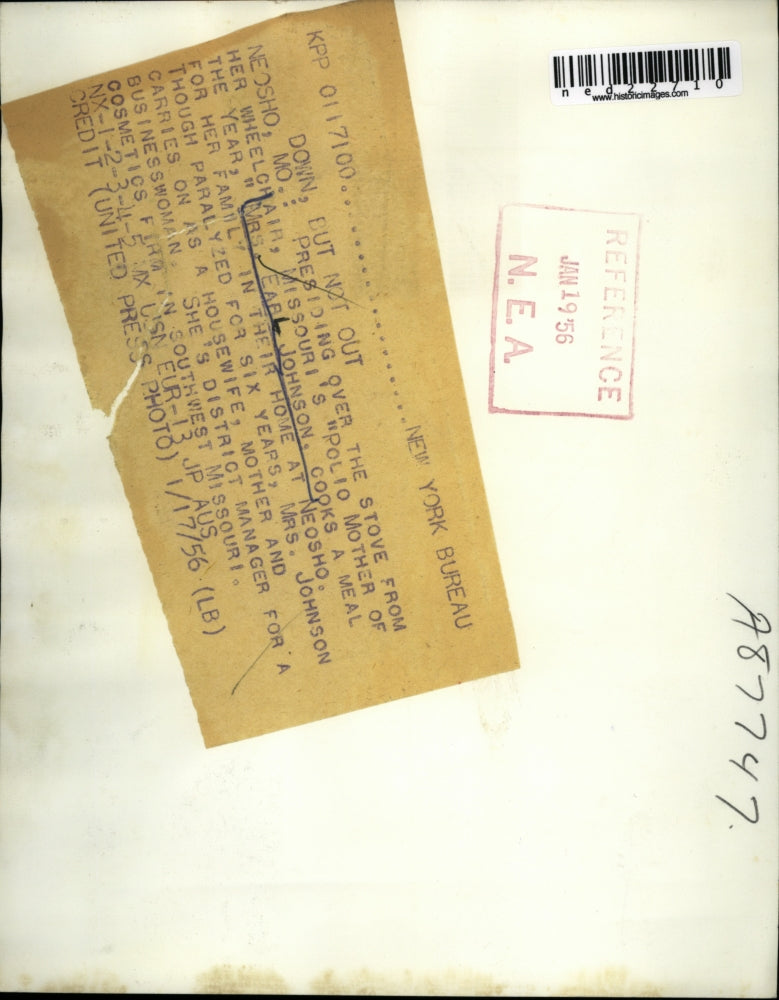 ned22710
www.historicimages.com
REFERENCE
JAN 19 '56
N. E. A.
A87747.
KPP 0117100....................NEW YORK BUREAU
DOWN, BUT NOT OUT
NEOSHO, MO.: PRESIDING OVER THE STOVE FROM
HER WHEELCHAIR, MISSOURI'S "POLIO MOTHER OF
THE YEAR," MRS. EARL JOHNSON, COOKS A MEAL
FOR HER FAMILY IN THEIR HOME AT NEOSHO.
THOUGH PARALYZED FOR SIX YEARS, MRS. JOHNSON
CARRIES ON AS A HOUSEWIFE, MOTHER AND
BUSINESSWOMAN. SHE IS DISTRICT MANAGER FOR A
COSMETICS FIRM IN SOUTHWEST MISSOURI.
NX-1-2-3-4-5 MX USN EUR-13 JP AUS
CREDIT (UNITED PRESS PHOTO) 1/17/56 (LB)